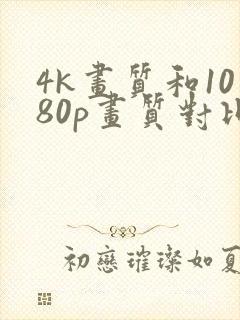 4k畫質和10
80p畫質對比
初戀璀璨如夏